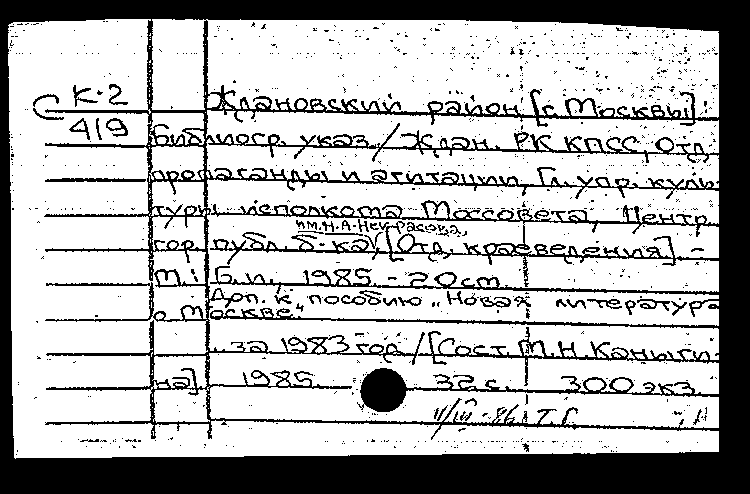 К-2
419
Ждановский район [г. Москвы]:
Библиогр. указ. / Ждан. РК КПСС, Отд.
пропаганды и агитации, Гл. упр. куль-
туры исполкома Моссовета, Центр.
гор. публ. б-ка им. Н.А. Некрасова, [Отд. краеведения]. -
М.: Б.и., 1985. - 20 см.
Доп. к пособию „Новая литература
о Москве“
... за 1983 год / [Сост. М.Н. Каныги-
на]. 1985. 32 с. 300 экз.
Т.Г.